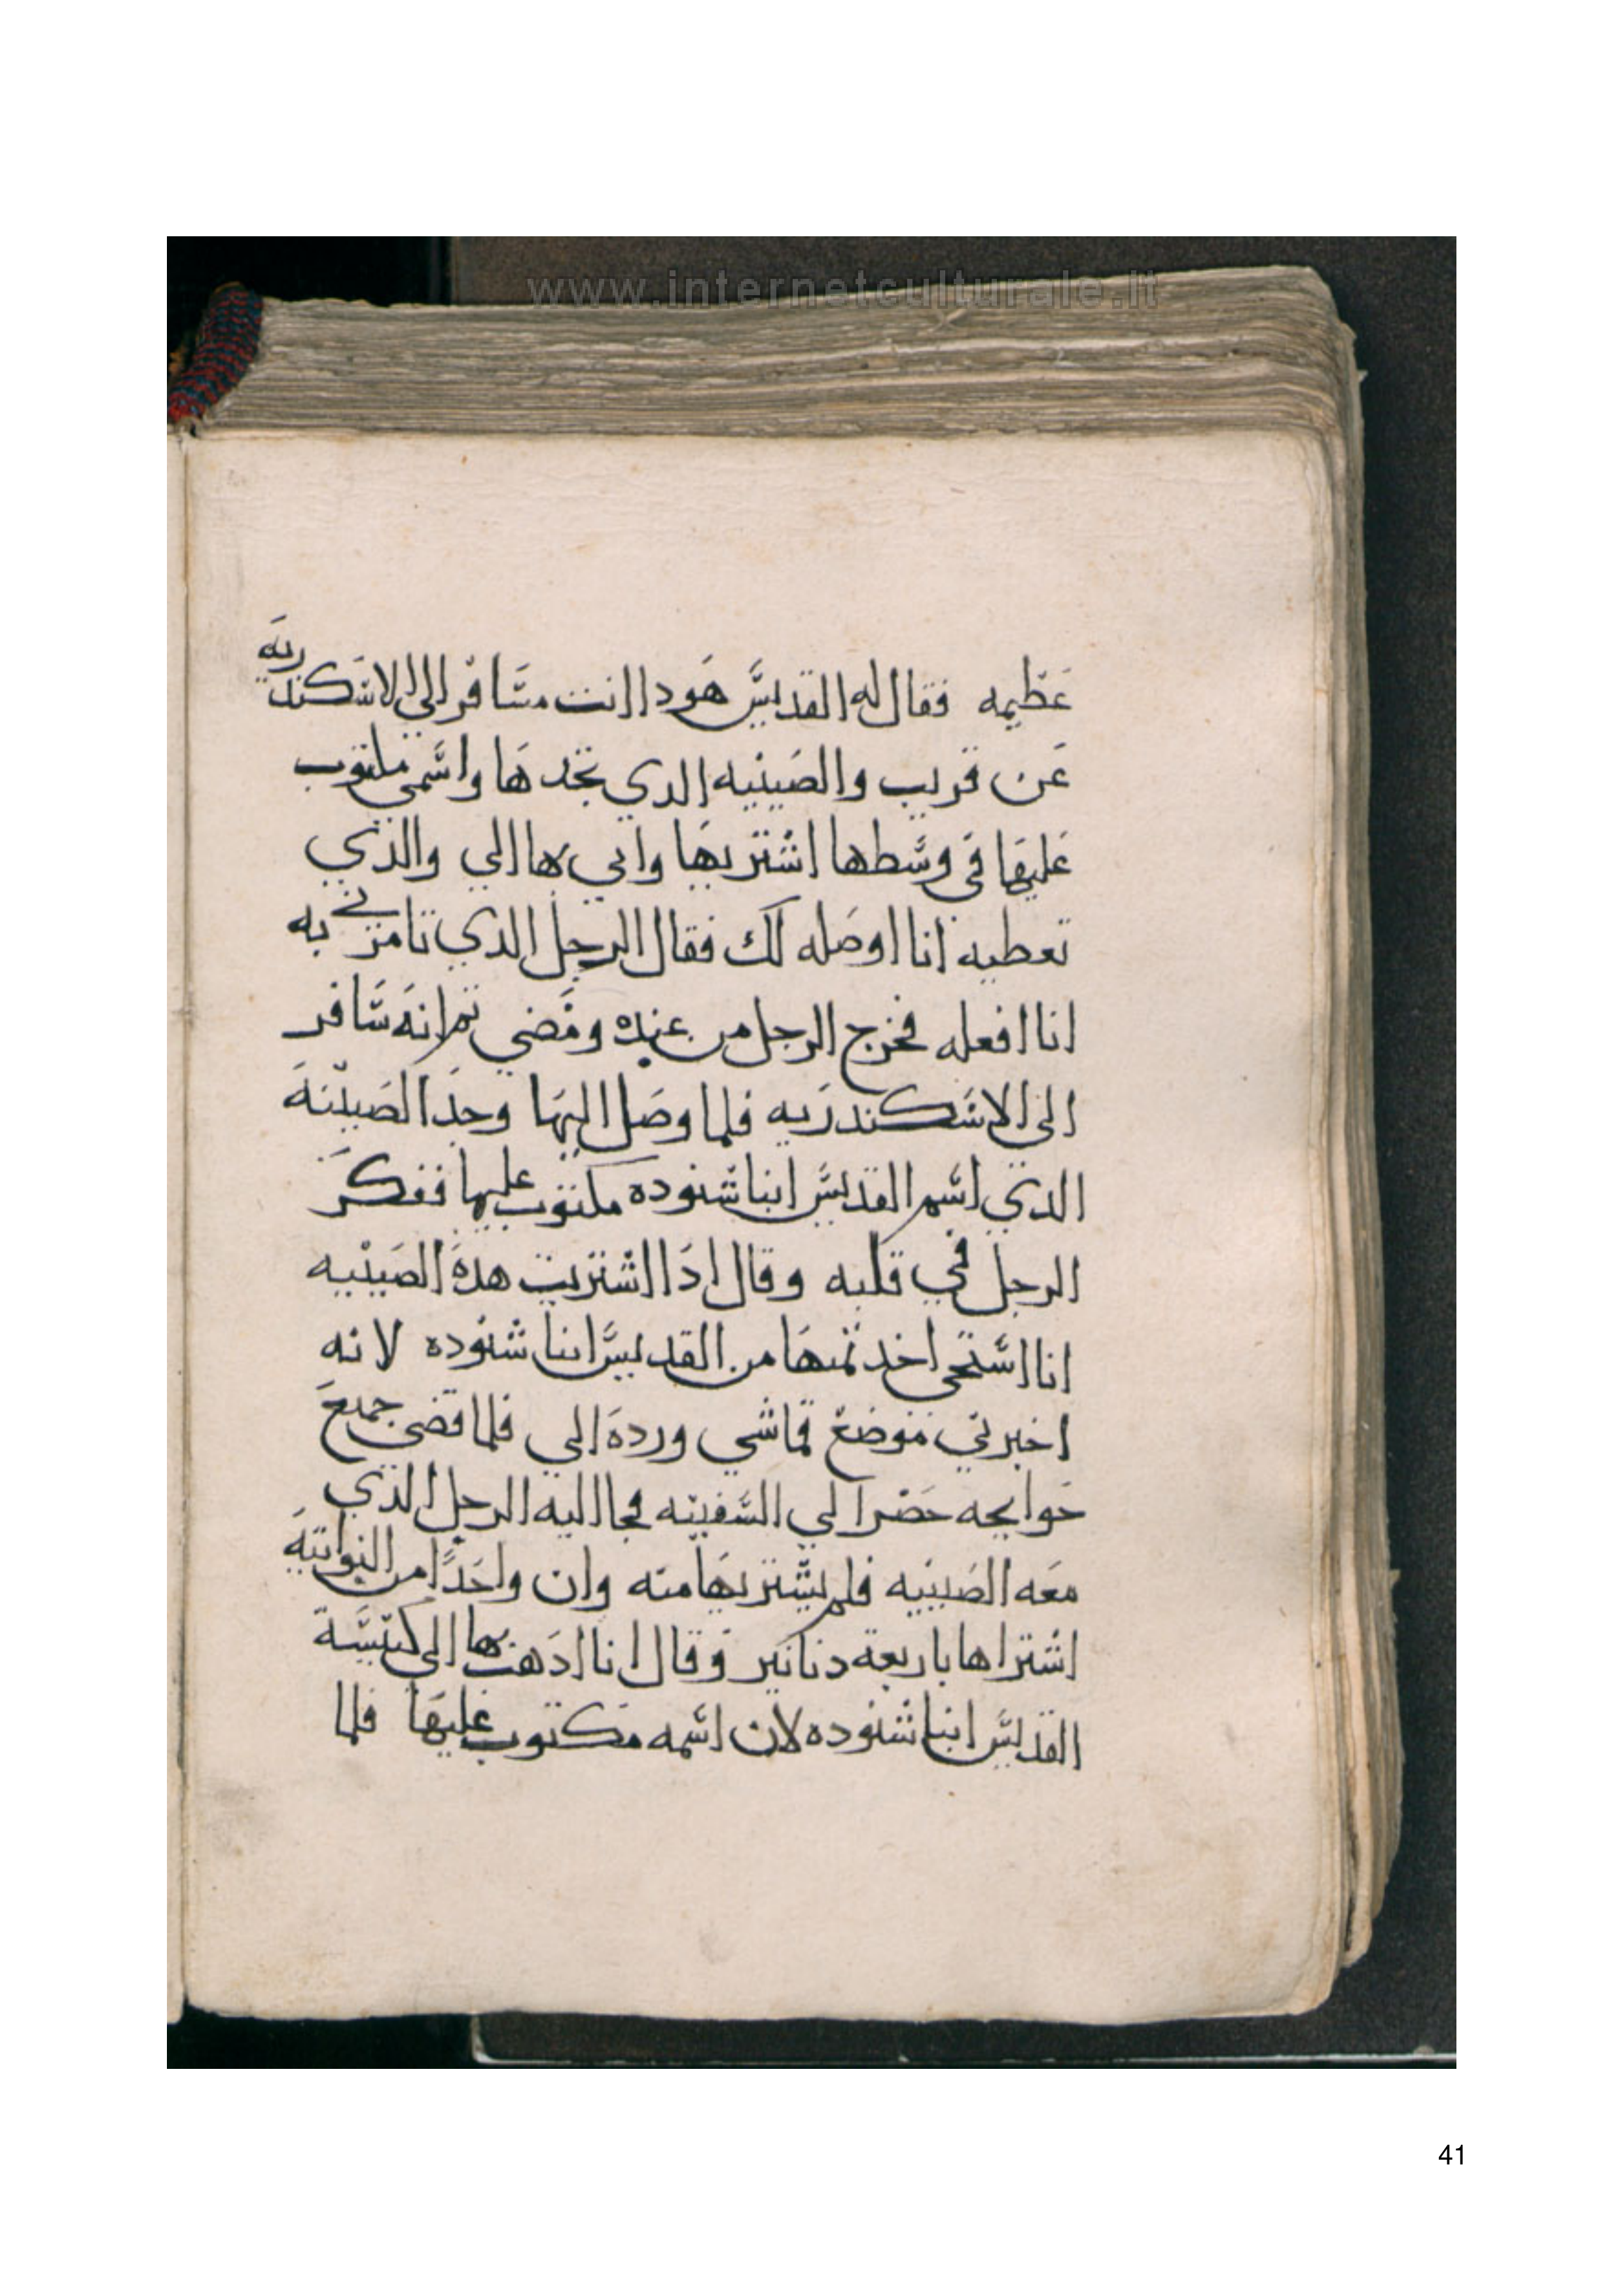 www.internetculturale.it
عظيمه فقال له القديس هودا انت مسافر الي الاسكندريه
عن قريب والصينيه الدي تجدها واسمي مكتوب
عليها في وسطها اشتريها واتي بها الي والذي
تعطيه انا اوصله لك فقال الرجل الدي تامرني به
انا افعله فخرج الرجل من عنده ومضي تم انه سافر
الى الاسكندريه فلما وصل اليها وجد الصينية
الدي اسم القديس انبا شنوده مكتوب عليها ففكر
الرجل في قلبه وقال ادا اشتريت هده الصينيه
انا استحى اخد تمنها من القديس انبا شنوده لانه
اخبرني موضع قماشي ورده الي فلما قضي جميع
حوايجه حضر الي السفينه فجا اليه الرجل الذي
معه الصينيه فلم يشتريها منه وان واحدًا من النواتية
اشتراها باربعة دنانير وقال انا ادهب بها الي كنيسة
القديس انبا شنوده لان اسمه مكتوب عليها فلما
41